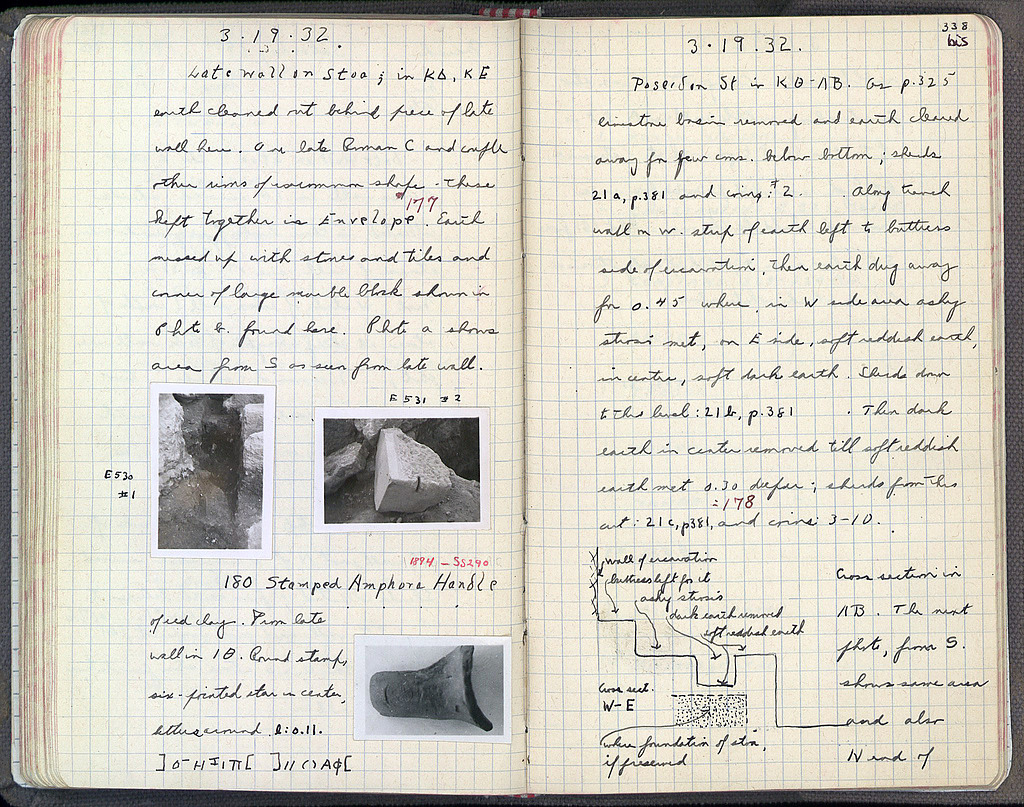 3·19·32.
Late wall on Stoa; in ΚΔ, ΚΕ
earth cleaned out behind piece of late
wall here. One late Roman C and couple
other rims of uncommon shape. These
#177
kept together in Envelope. Earth
messed up with stones and tiles and
corner of large marble block shown in
Photo b. found here. Photo a shows
area from S as seen from late wall.
E 531 #2
E 530
#1
1894 – SS290
180 Stamped Amphora Handle
of red clay. From late
wall in ΙΘ. Round stamp,
six-pointed star in center,
letters around. l: 0.11.
338
bis
3·19·32.
Poseidon St in ΚΘ-ΛΒ. as p.325
limestone basin removed and earth cleared
away for few cms. below bottom; sherds
21a, p.381 and coins: #2. Along trench
wall on W. strip of earth left to buttress
side of excavation, then earth dug away
for 0.45 where, in W side area ashy
strosis met, on E side, soft reddish earth,
in centre, soft dark earth. Sherds down
to this level: 21b, p.381. Then dark
earth in center removed till soft reddish
earth met 0.30 deeper; sherds from this
=178
cut: 21c, p381, and coins 3-10.
wall of excavation
buttress left for it
ashy strosis
dark earth removed
soft reddish earth
Cross sect.
W-E
where foundation of stoa,
if preserved
Cross section in
ΛΒ. The next
photo, from S.
shows same area
and also
N end of